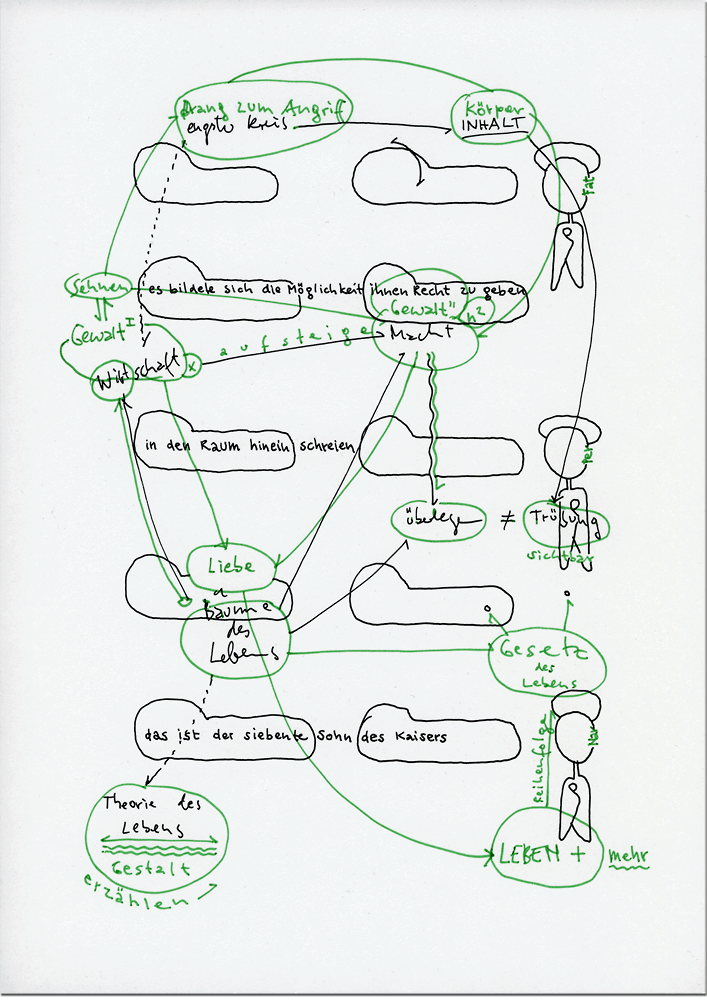 Drang zum Angriff
engste Kreis
Körper
INHALT
Fat
Sehnen
es bildete sich die Möglichkeit ihnen Recht zu geben
Gewalt II
n²
Gewalt I
Macht
aufsteige
Wirtschaft
x
in den Raum hinein schreien
Per
überlege
≠
Trübung
sichtbar
Liebe
Bäume
des
Lebens
Gesetz
des
Lebens
das ist der siebente Sohn des Kaisers
Nar
Reihenfolge
Theorie des
Lebens
Gestalt
erzählen
LEBEN + mehr